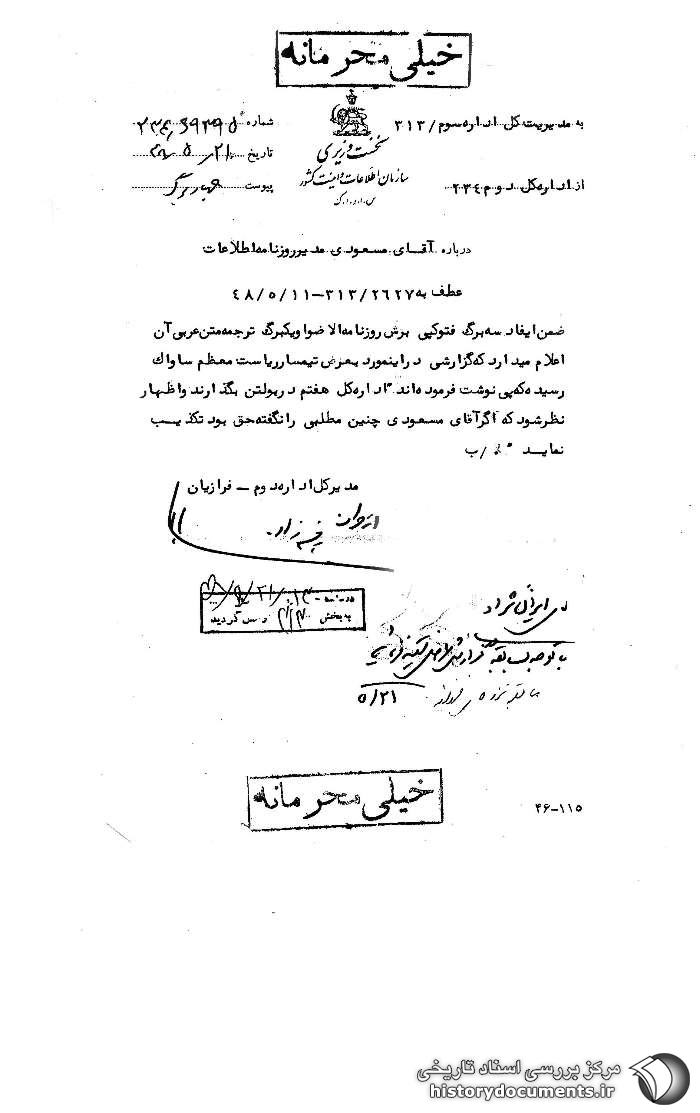 خیلی محرمانه
به مدیریت کل اداره سوم/ ۳۱۳
نخست وزیری
سازمان اطلاعات و امنیت کشور
س.ا.و.ا.ک
شماره
تاریخ
پیوست چهار برگ
از اداره کل دوم ۲۳٤
درباره آقای مسعودی مدیر روزنامه اطلاعات
عطف به ۳۱۳/۲۶۲۷-٤٨/٥/۱۱
ضمن ایفاد سه برگ فتوکپی برش روزنامه الاضوا ویکبرگ ترجمه متن عربی آن
اعلام میدارد که گزارشی در اینمورد بعرض تیمسار ریاست معظم ساواک
رسیده که پی نوشت فرموده اند "اداره کل هفتم در بولتن بگذارند و اظهار
نظر شود که اگر آقای مسعودی چنین مطلبی را نگفته حق بود تکذیب
نماید"
مدیر کل اداره دوم – فرازیان
به بخش رسید گردید
ایرانی نژاد
٥/۲۱
خیلی محرمانه
۴۶-۱۱۵
مرکز بررسی اسناد تاریخی
historydocuments.ir